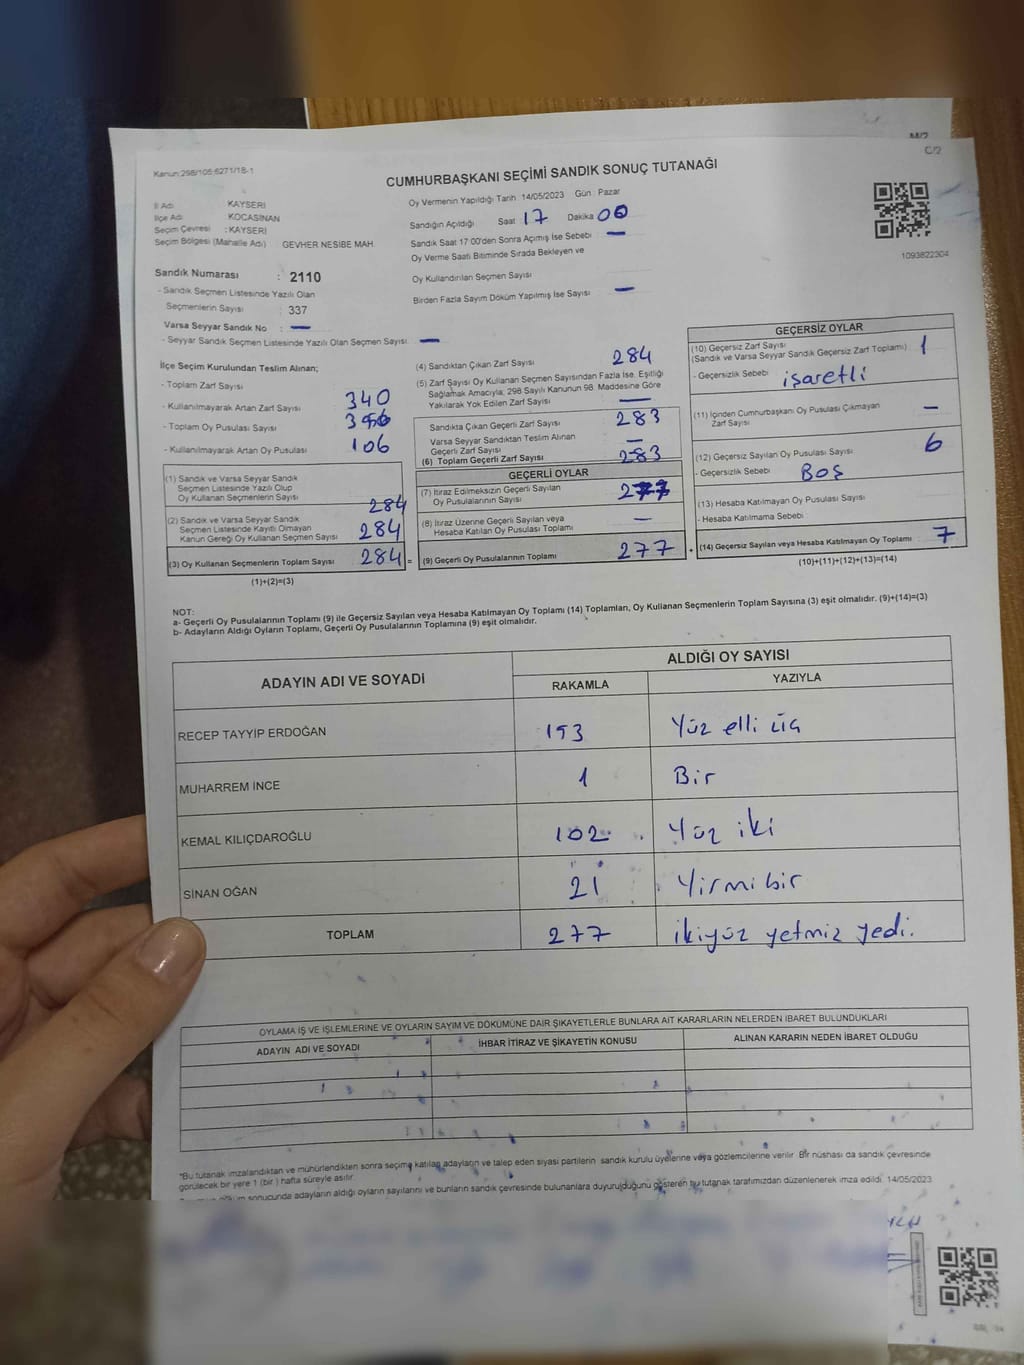 Kanun:298/105-6271/18-1
C/2
CUMHURBAŞKANI SEÇİMİ SANDIK SONUÇ TUTANAĞI
İl Adı KAYSERİ
İlçe Adı KOCASİNAN
Seçim Çevresi : KAYSERİ
Seçim Bölgesi (Mahalle Adı) GEVHER NESİBE MAH.
Oy Vermenin Yapıldığı Tarih 14/05/2023 Gün : Pazar
Sandığın Açıldığı Saat 17 Dakika 00
Sandık Saat 17:00'den Sonra Açımış İse Sebebi —
Oy Verme Saati Bitiminde Sırada Bekleyen ve
Oy Kullandırılan Seçmen Sayısı
Birden Fazla Sayım Döküm Yapılmış İse Sayısı —
1093822304
Sandık Numarası : 2110
- Sandık Seçmen Listesinde Yazılı Olan
Seçmenlerin Sayısı : 337
Varsa Seyyar Sandık No : —
- Seyyar Sandık Seçmen Listesinde Yazılı Olan Seçmen Sayısı —
İlçe Seçim Kurulundan Teslim Alınan;
- Toplam Zarf Sayısı 340
- Kullanılmayarak Artan Zarf Sayısı
- Toplam Oy Pusulası Sayısı
- Kullanılmayarak Artan Oy Pusulası 106
(1) Sandık ve Varsa Seyyar Sandık
Seçmen Listesinde Yazılı Olup
Oy Kullanan Seçmenlerin Sayısı 284
(2) Sandık ve Varsa Seyyar Sandık
Seçmen Listesinde Kayıtlı Olmayan
Kanun Gereği Oy Kullanan Seçmen Sayısı 284
(3) Oy Kullanan Seçmenlerin Toplam Sayısı 284 =
(1)+(2)=(3)
(4) Sandıktan Çıkan Zarf Sayısı 284
(5) Zarf Sayısı Oy Kullanan Seçmen Sayısından Fazla İse, Eşitliği
Sağlamak Amacıyla; 298 Sayılı Kanunun 98. Maddesine Göre
Yakılarak Yok Edilen Zarf Sayısı —
Sandıkta Çıkan Geçerli Zarf Sayısı 283
Varsa Seyyar Sandıktan Teslim Alınan
Geçerli Zarf Sayısı —
(6) Toplam Geçerli Zarf Sayısı 283
GEÇERLİ OYLAR
(7) İtiraz Edilmeksizin Geçerli Sayılan
Oy Pusulalarının Sayısı 277
(8) İtiraz Üzerine Geçerli Sayılan veya
Hesaba Katılan Oy Pusulası Toplamı —
(9) Geçerli Oy Pusulalarının Toplamı 277 +
GEÇERSİZ OYLAR
(10) Geçersiz Zarf Sayısı 1
(Sandık ve Varsa Seyyar Sandık Geçersiz Zarf Toplamı)
- Geçersizlik Sebebi : işaretli
(11) İçinden Cumhurbaşkanı Oy Pusulası Çıkmayan
Zarf Sayısı —
(12) Geçersiz Sayılan Oy Pusulası Sayısı 6
- Geçersizlik Sebebi : Boş
(13) Hesaba Katılmayan Oy Pusulası Sayısı
- Hesaba Katılmama Sebebi :
(14) Geçersiz Sayılan veya Hesaba Katılmayan Oy Toplamı 7
(10)+(11)+(12)+(13)=(14)
NOT:
a- Geçerli Oy Pusulalarının Toplamı (9) ile Geçersiz Sayılan veya Hesaba Katılmayan Oy Toplamı (14) Toplamları, Oy Kullanan Seçmenlerin Toplam Sayısına (3) eşit olmalıdır. (9)+(14)=(3)
b- Adayların Aldığı Oyların Toplamı, Geçerli Oy Pusulalarının Toplamına (9) eşit olmalıdır.
ADAYIN ADI VE SOYADI ALDIĞI OY SAYISI
RAKAMLA YAZIYLA
RECEP TAYYİP ERDOĞAN 153 Yüz elli üç
MUHARREM İNCE 1 Bir
KEMAL KILIÇDAROĞLU 102 Yüz iki
SİNAN OĞAN 21 Yirmi bir
TOPLAM 277 ikiyüz yetmiz yedi.
OYLAMA İŞ VE İŞLEMLERİNE VE OYLARIN SAYIM VE DÖKÜMÜNE DAİR ŞİKAYETLERLE BUNLARA AİT KARARLARIN NELERDEN İBARET BULUNDUKLARI
ADAYIN ADI VE SOYADI İHBAR İTİRAZ VE ŞİKAYETİN KONUSU ALINAN KARARIN NEDEN İBARET OLDUĞU
*Bu tutanak imzalandıktan ve mühürlendikten sonra seçime katılan adayların ve talep eden siyasi partilerin sandık kurulu üyelerine veya gözlemcilerine verilir. Bir nüshası da sandık çevresinde
görülecek bir yere 1 (bir ) hafta süreyle asılır.
sonucunda adayların aldığı oyların sayılarını ve bunların sandık çevresinde bulunanlara duyurulduğunu gösteren bu tutanak tarafımızdan düzenlenerek imza edildi. 14/05/2023